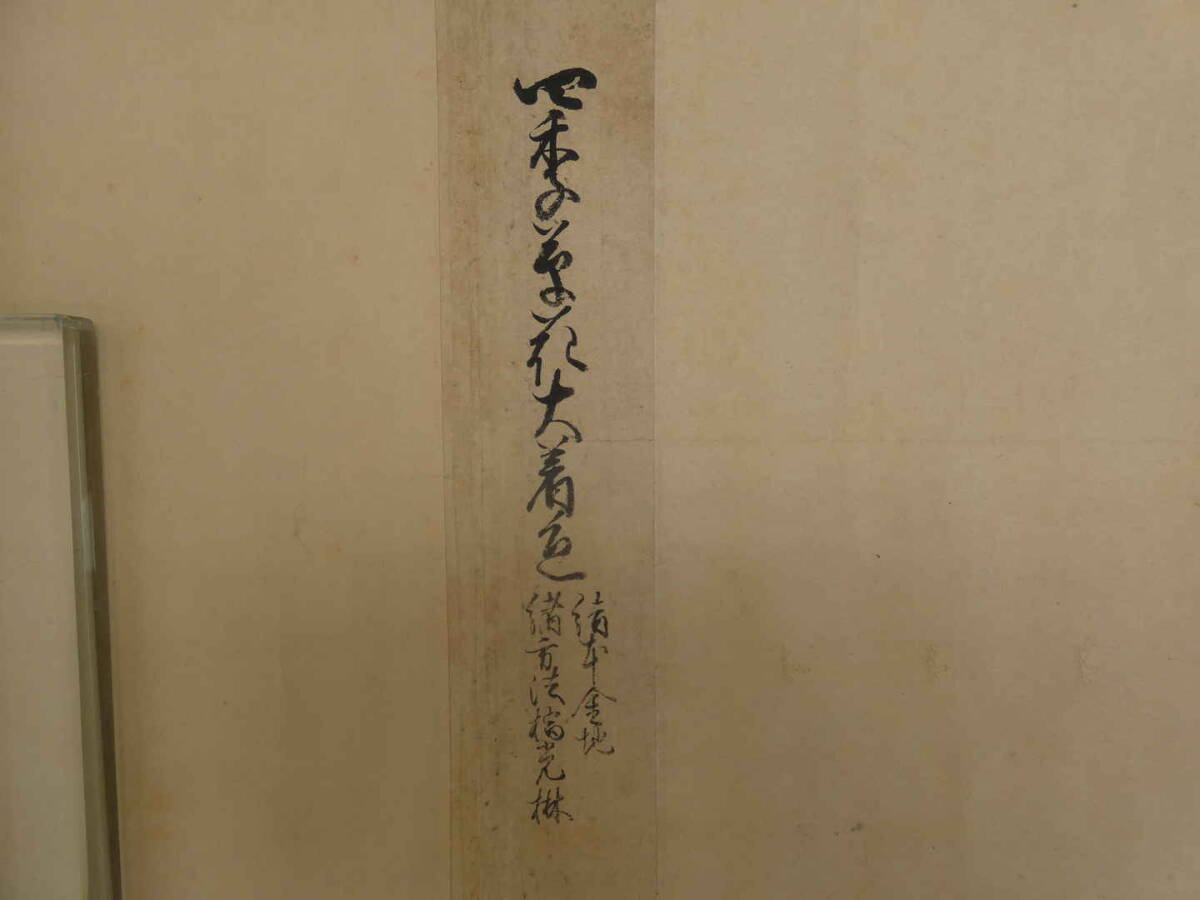 四季の草花大着色
絹本金地
緒方法橋光琳